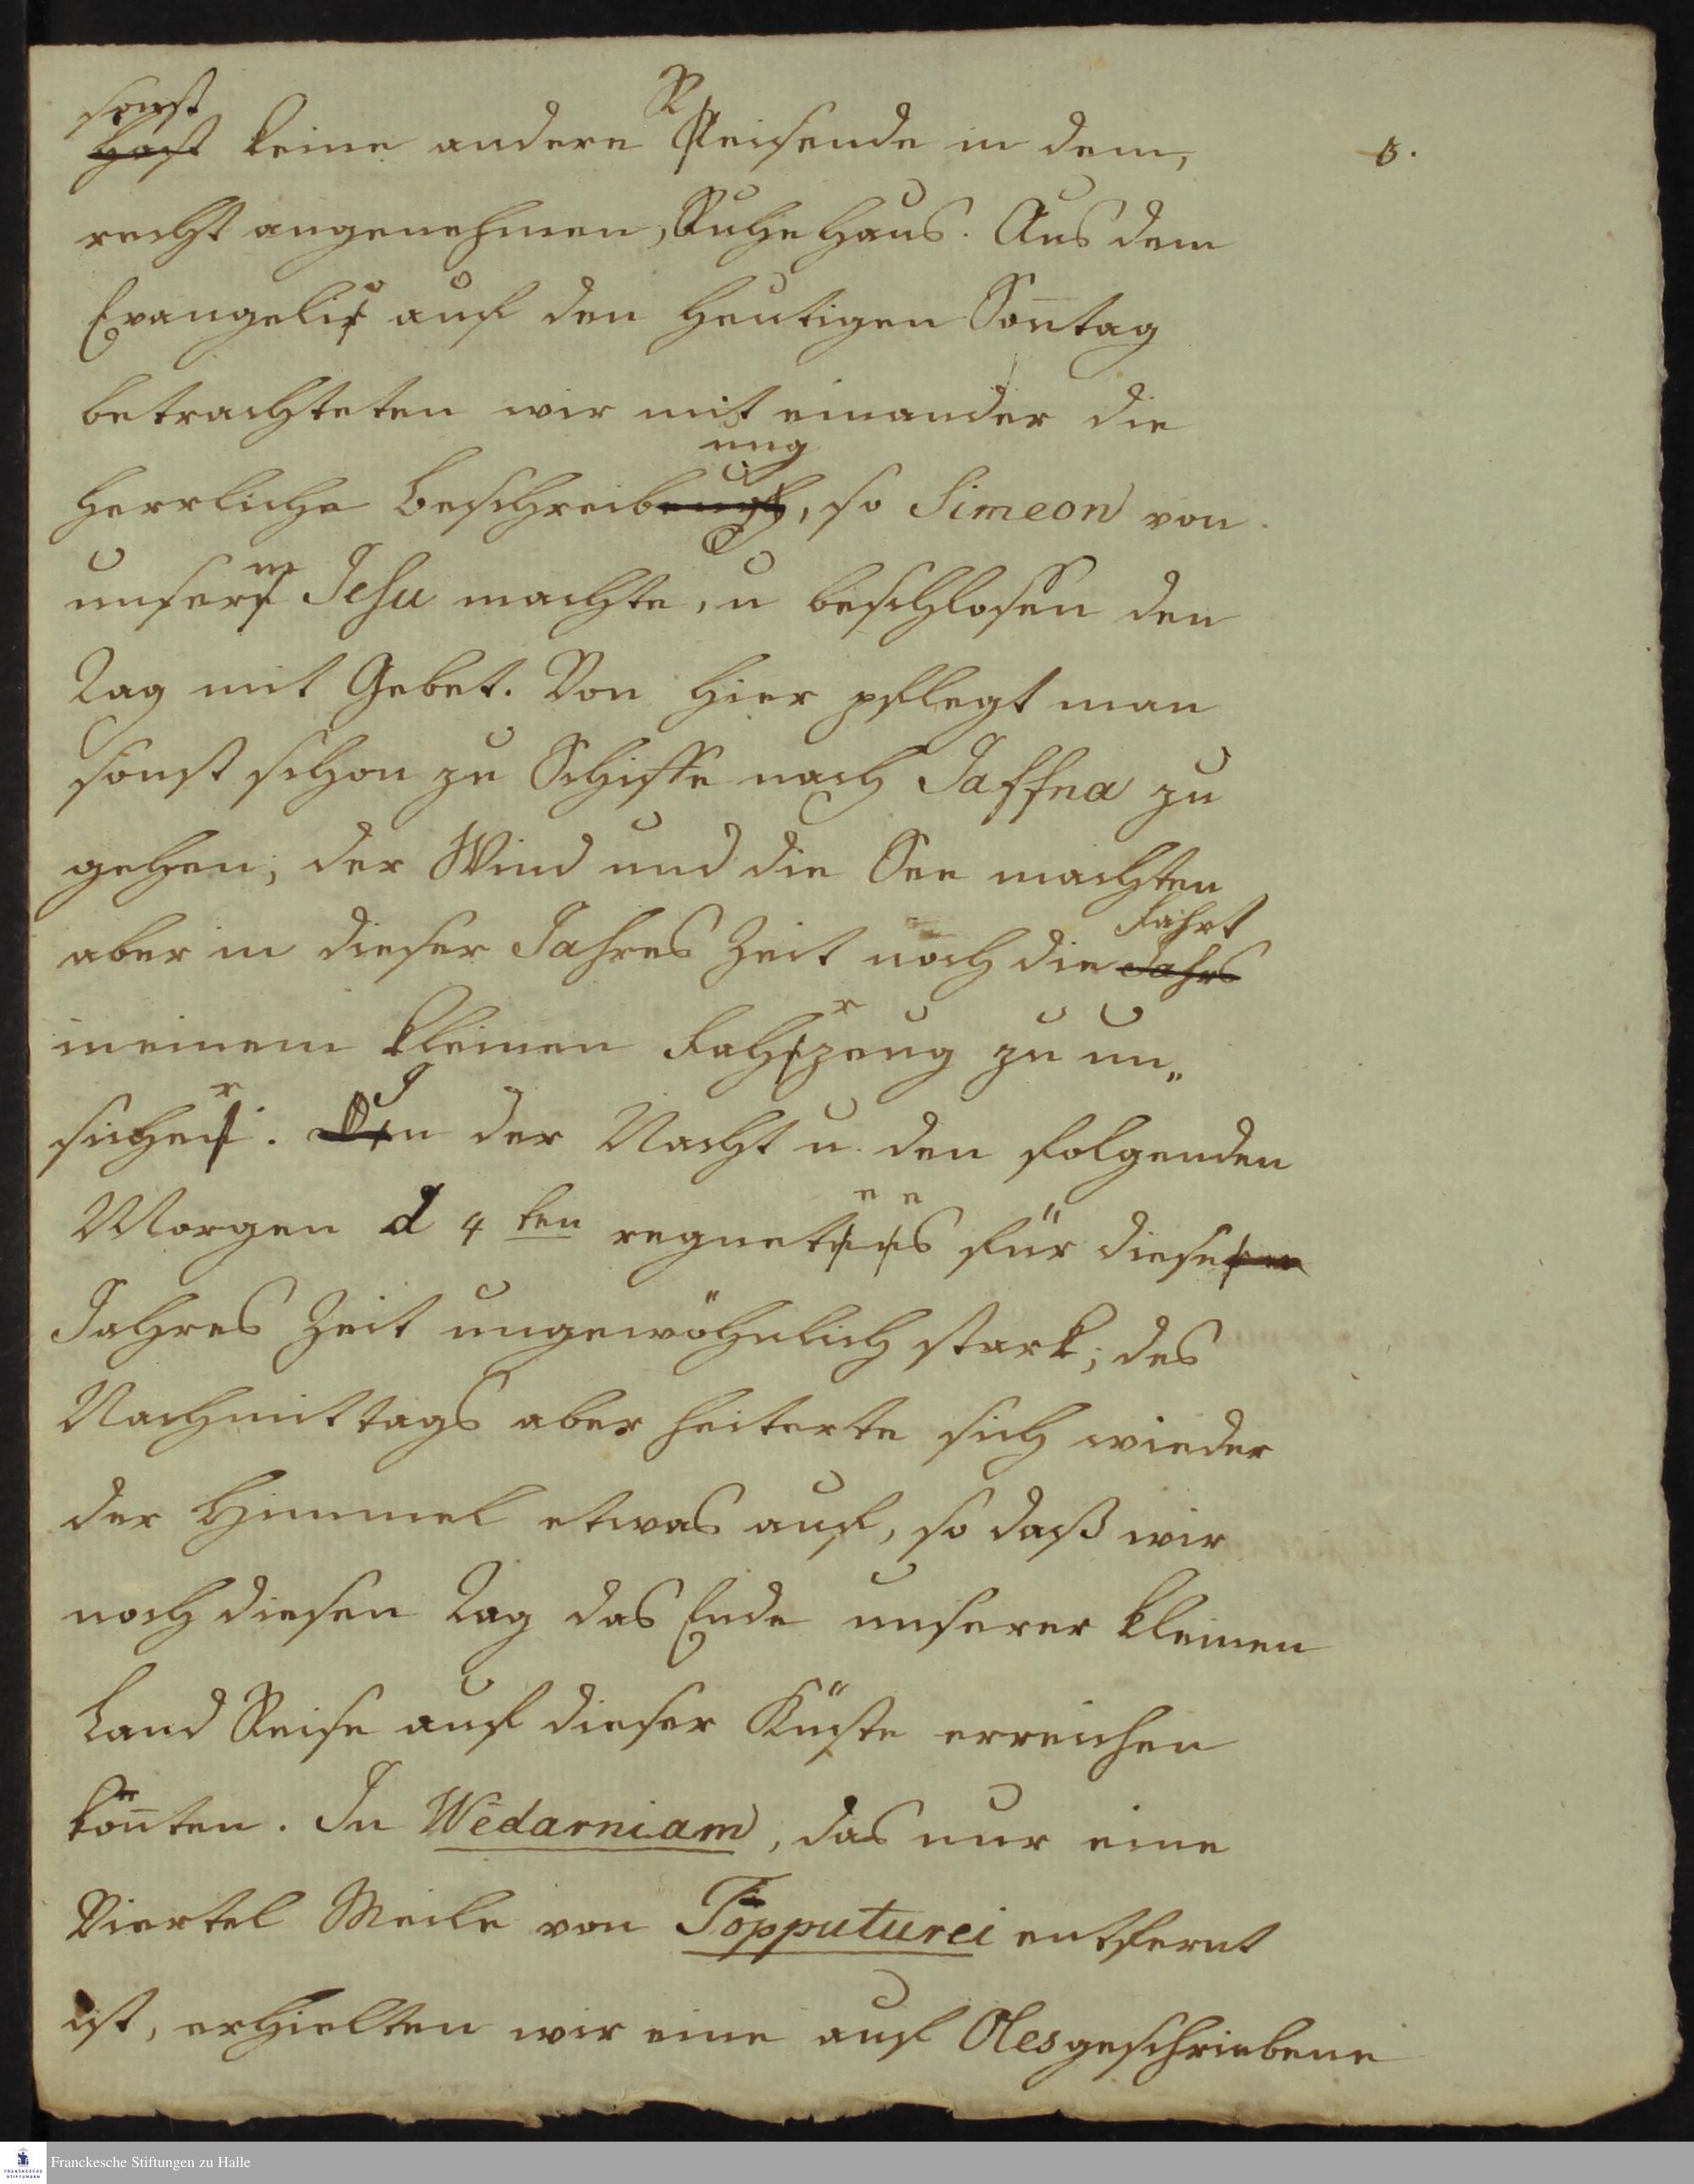 sonst
keine andere Reisende in dem,
5.
recht angenehmen, Ruhe Haus. Aus dem
Evangelio auf den heutigen Son̅tag
betrachteten wir mit einander die
herrliche Beschreibung, so Simeon von
unserm Jesu machte, u beschlosen den
Tag mit Gebet. Von hier pflegt man
sonst schon zu Schiffe nach Jaffna zu
gehen; der Wind und die See machten
aber in dieser Jahres Zeit noch die Fahrt
in einem kleinen Fahrzeug zu un„
sicher. In der Nacht u. den folgenden
Morgen d 4 ten regnete es für diese
Jahres Zeit ungewöhnlich stark; des
Nachmittags aber heiterte sich wieder
der Himmel etwas auf, so daß wir
noch diesen Tag das Ende unserer kleinen
Land Reise auf dieser Küste erreichen
kön̅ten. In Wēdarniam, das nur eine
Viertel Meile von Topputurei entfernt
ist, erhielten wir eine auf Oles geschriebene
Franckesche Stiftungen zu Halle
FRANCKESCHE STIFTUNGEN